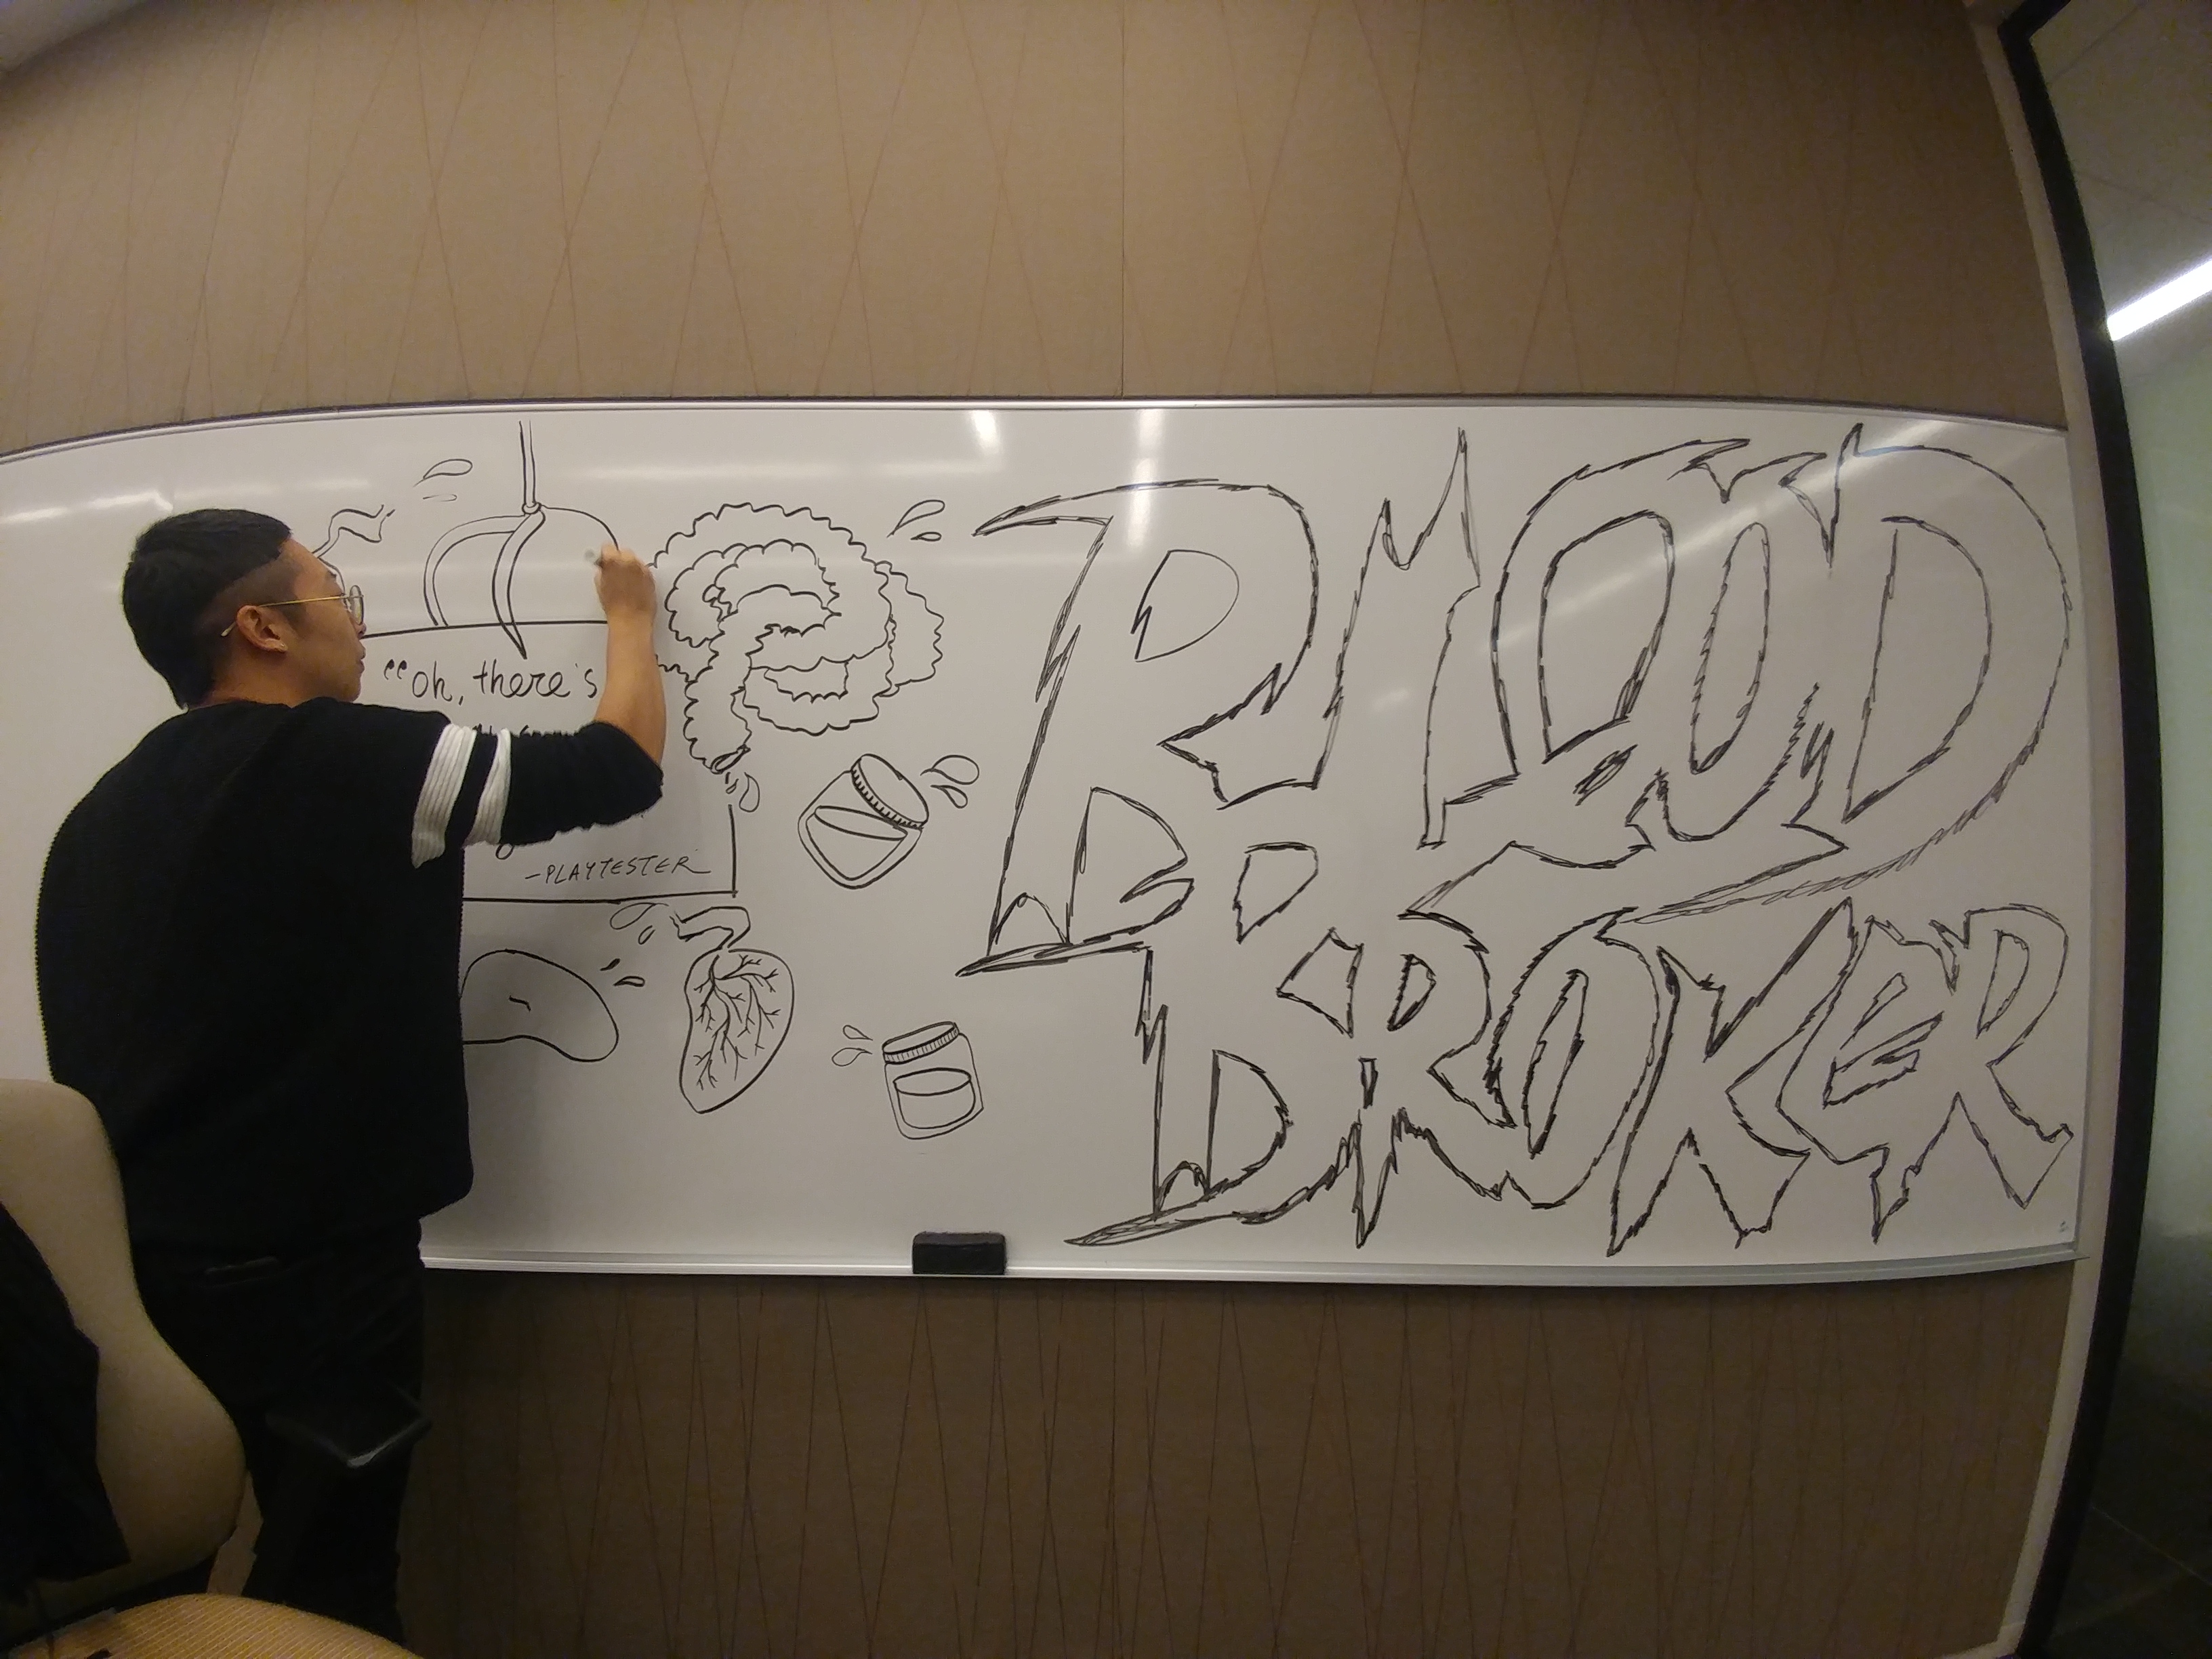 “oh, there's
—PLAYTESTER
BLOOD
BROKER